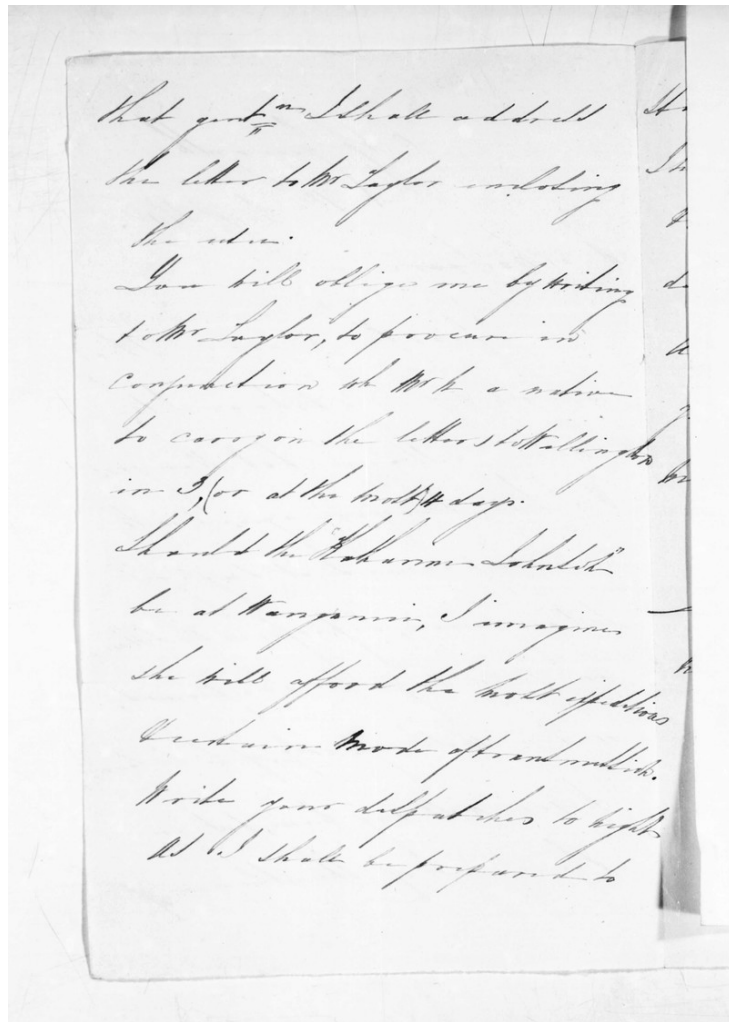 that gentn I shall address
the letter to Mr Taylor inclosing
the
You will oblige me by writing
to Mr Taylor, to procure in
conjunction with Mr K a native
to carry on the letters to Wellington
in 3, (or at the most) 4 days.
Should the "Katharine Johnston"
be at Wanganui, I imagine
she will afford the most expeditious
& certain mode of transmission.
Write your despatches to night
as I shall be prepared to